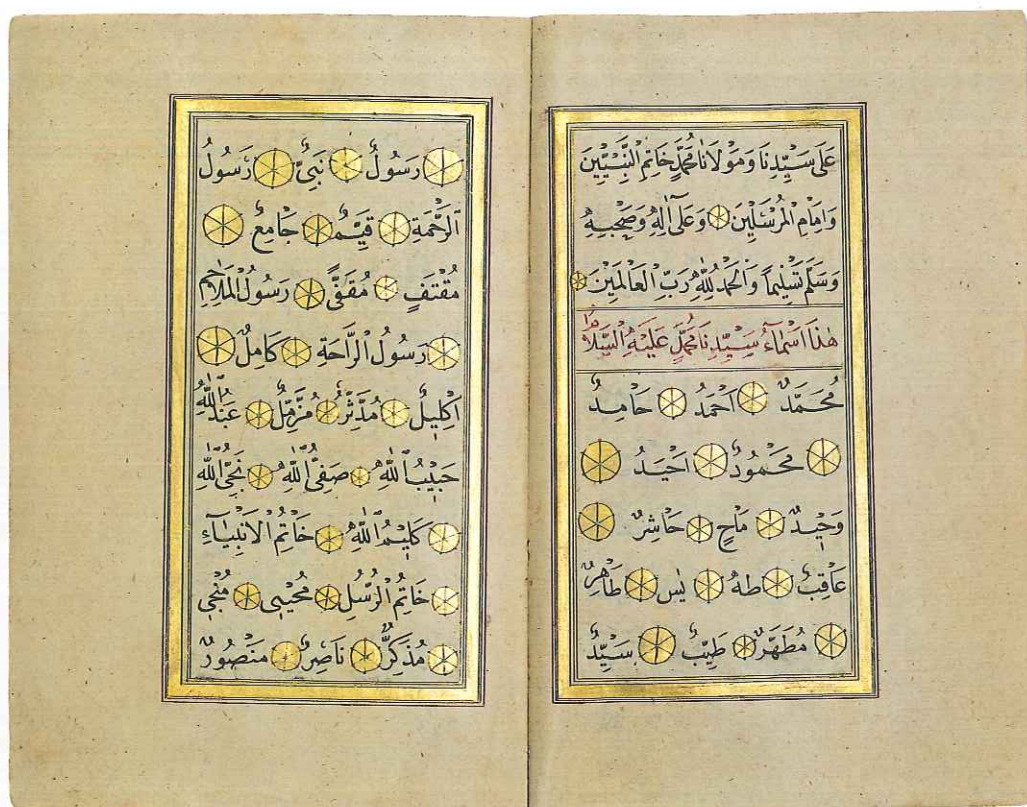 عَلَى سَيِّدِنَا وَمَوْلَانَا مُحَمَّدٍ خَاتِمِ النَّبِيِّينَ
وَاِمَامِ الْمُرْسَلِينَ وَعَلَى اٰلِهِ وَصَحْبِهِ
وَسَلَّمَ تَسْلِيمًا وَالْحَمْدُ لِلّٰهِ رَبِّ الْعَالَمِينَ
هٰذَا اَسْمَاءُ سَيِّدِنَا مُحَمَّدٍ عَلَيْهِ السَّلَامُ
مُحَمَّدٌ اَحْمَدُ حَامِدٌ
مَحْمُودٌ اَحِيدُ
وَحِيدٌ مَاحٍ حَاشِرٌ
عَاقِبٌ طٰهٰ يٰس طَاهِرٌ
مُطَهَّرٌ طَيِّبٌ سَيِّدٌ
رَسُولٌ نَبِيٌّ رَسُولُ
الرَّحْمَةِ قَيِّمٌ جَامِعٌ
مُقْتَفٍ مُقَفًّى رَسُولُ الْمَلَاحِمِ
رَسُولُ الرَّاحَةِ كَامِلٌ
اِكْلِيلٌ مُدَّثِّرٌ مُزَّمِّلٌ عَبْدُ اللّٰهِ
حَبِيبُ اللّٰهِ صَفِيُّ اللّٰهِ نَجِيُّ اللّٰهِ
كَلِيمُ اللّٰهِ خَاتِمُ الْاَنْبِيَاءِ
خَاتِمُ الرُّسُلِ مُحْيِي مُنْجِي
مُذَكِّرٌ نَاصِرٌ مَنْصُورٌ